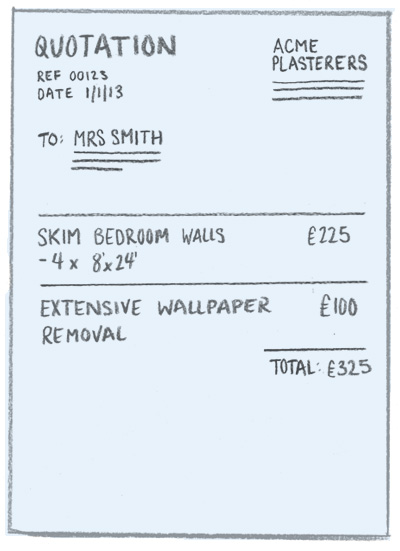 QUOTATION
REF 00123
DATE 1/1/13
ACME
PLASTERERS
TO: MRS SMITH
SKIM BEDROOM WALLS £225
- 4 x 8'x24'
EXTENSIVE WALLPAPER £100
REMOVAL
TOTAL: £325